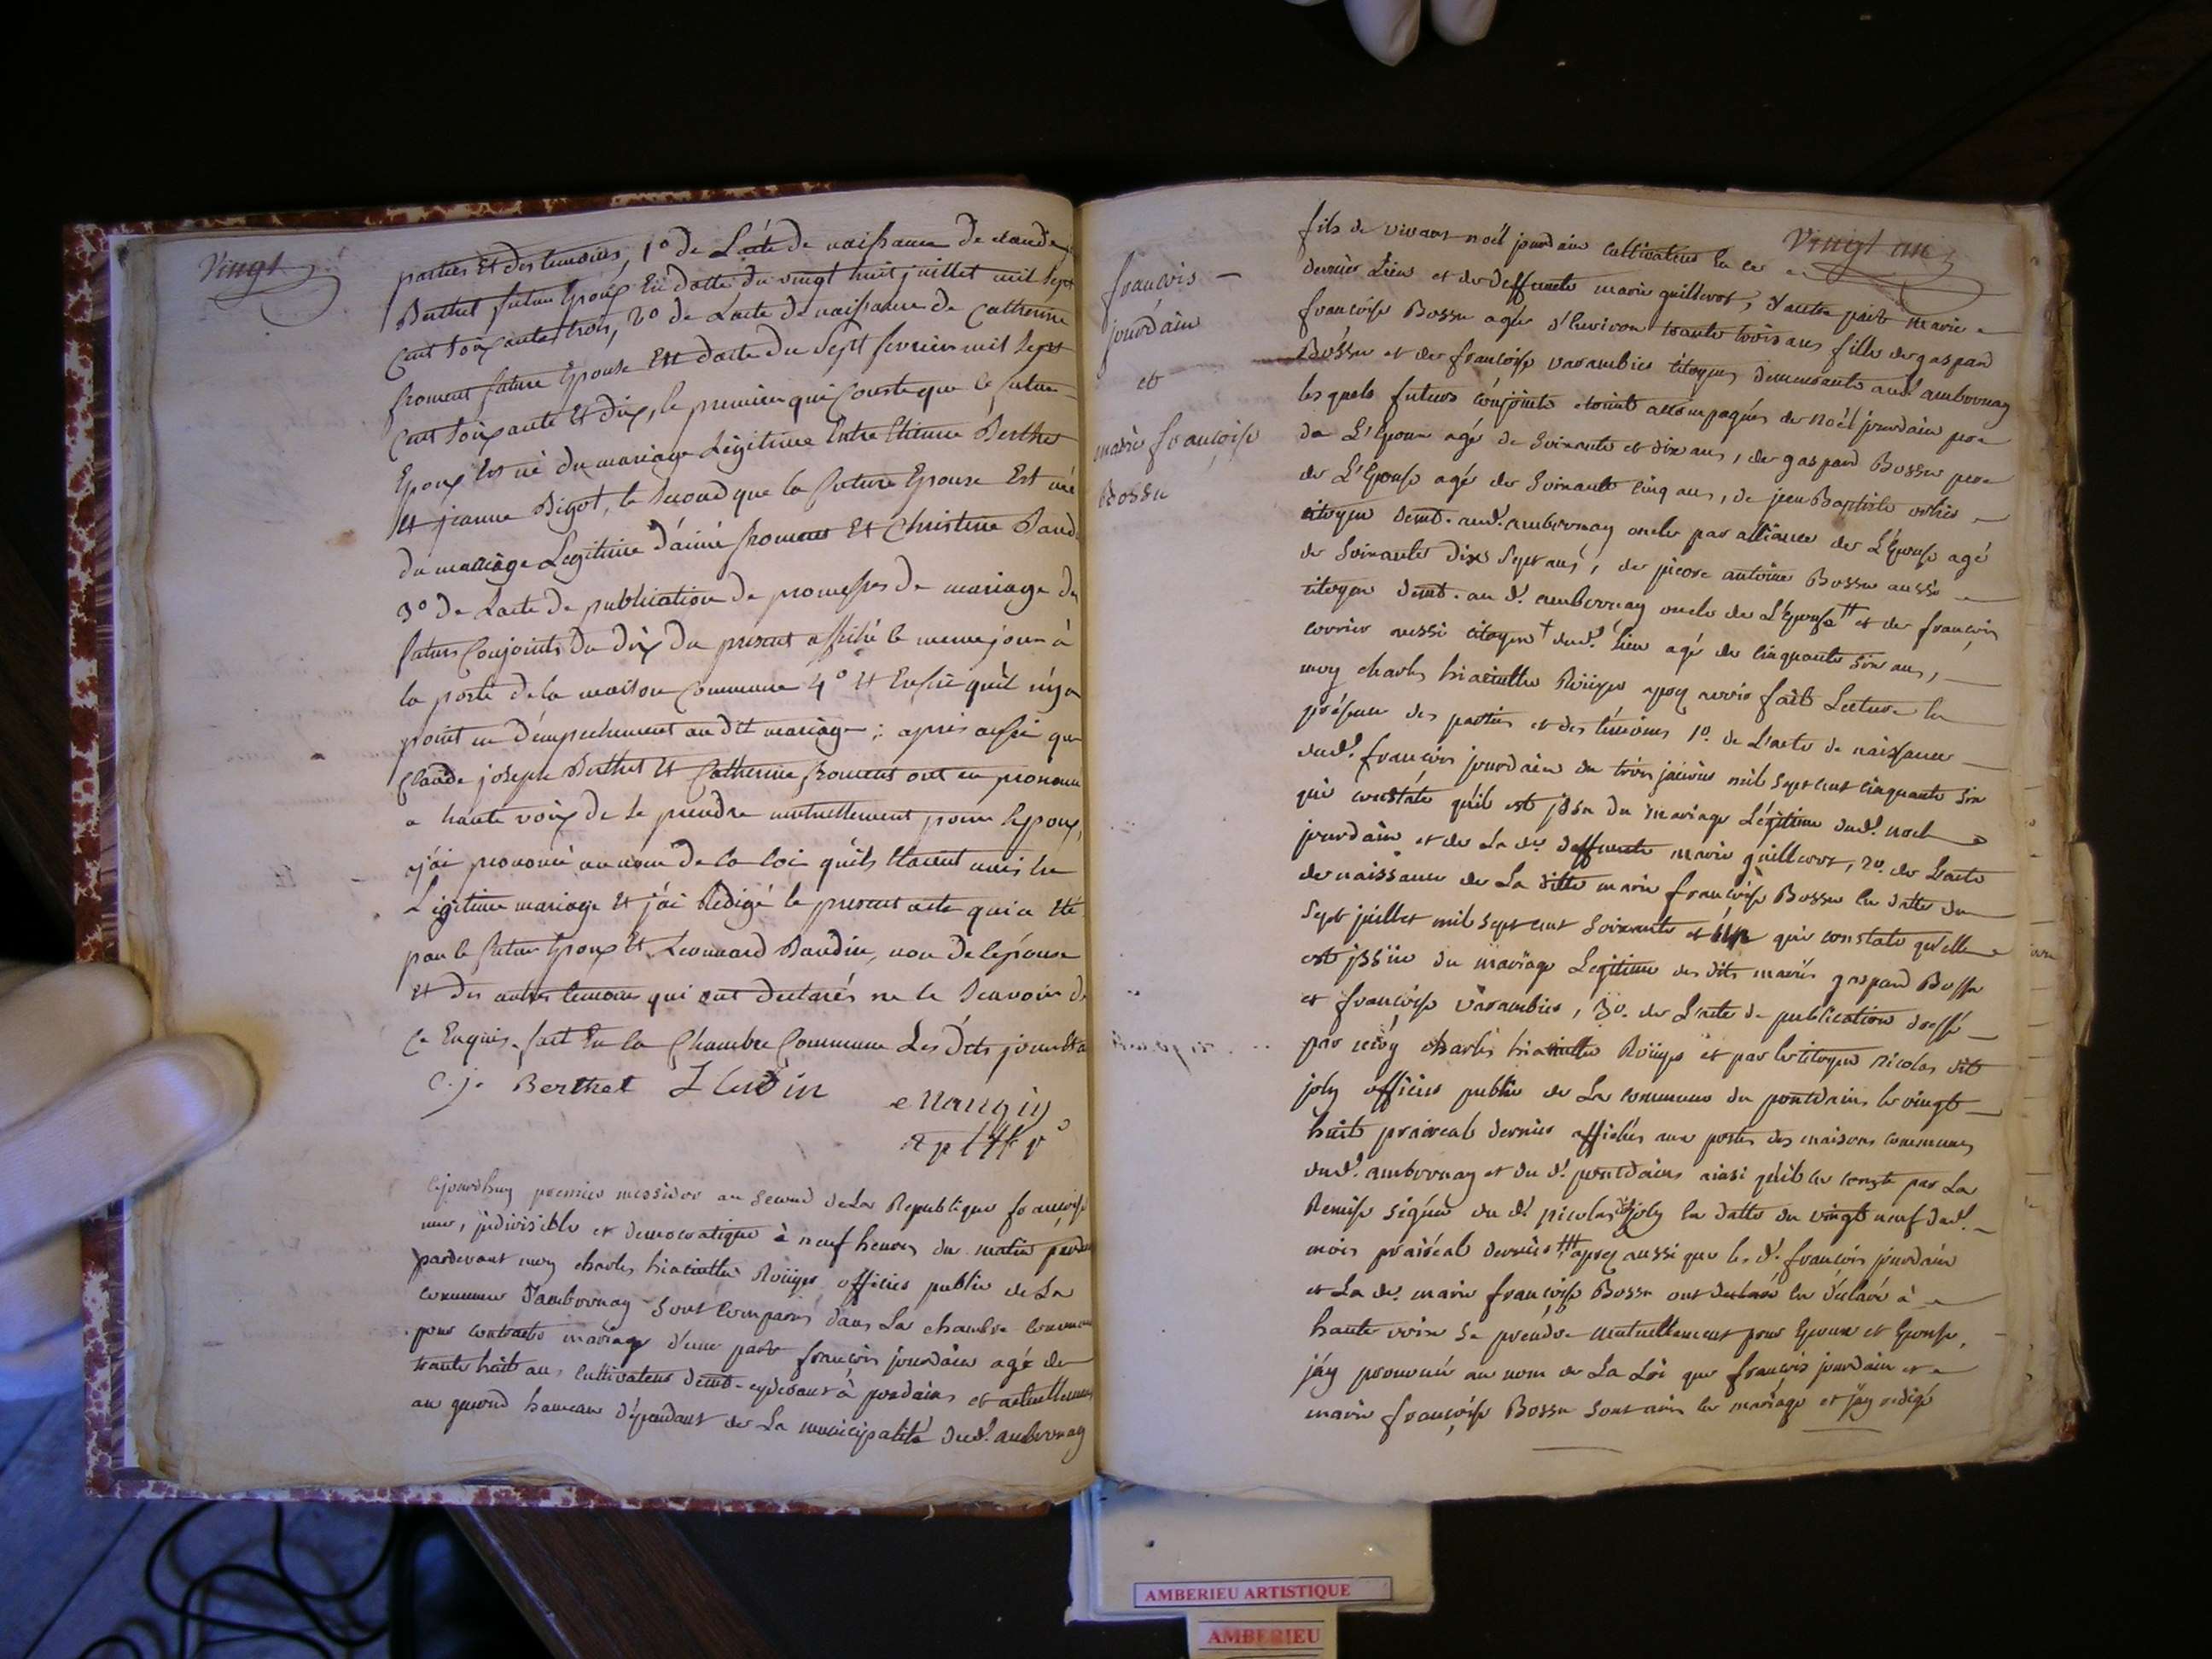 Vingt
parties et des temoins, 1º de L'acte de naissance de claude
Berthet futur Epoux En datte du vingt huit juillet mil sept
Cent soixante trois, 2º de L'acte de naissance de Catherine
froment future Epouse En datte du sept fevrier mil sept
Cent soixante et dix, le premier qui Conste que le futur
Epoux Est né du mariage Légitime Entre Etienne Berthet
et jeanne Bigot, le second que la future Epouse Est née
du mariage Legitime d'aimé froment Et Christine Baud
3º de L'acte de publication de promesses de mariage des
futurs Conjoints du dix du present affiché le meme jour à
la porte de la maison Commune 4º et Enfin qu'il n'y a
point eu d'empechement au dit mariage; après aussi que
Claude joseph Berthet et Catherine froment ont eu prononcé
a haute voix de se prendre mutuellement pour Epoux,
j'ai prononcé au nom de la loi qu'ils Etaient unis en
Légitime mariage et j'ai Rédigé le present acte qui a été
par le futur Epoux Et Leonnard Baudin, non de l'épouse
et des autres temoins qui ont declarés ne le scavoir de
Ce Enquis. fait En la Chambre Commune Les dits jour Et an
C. j. Berthet
cejourdhuy premier messidor an second de La Republique françoise
une, indivisible et democratique à neuf heures du matin
pardevant moy charles hiacinthe Roüyer officier public de La
commune d'ambornay sont comparus dans La chambre commune
pour contracter mariage d'une part françois jourdain agé de
trante huit ans cultivateur demt. cydevant à pondains et actuellement
au hameau dépendant de La municipalité dud. ambornay
Vingt un
françois
jourdain
et
marie françoise
Bossu
fils de vivant noël jourdain cultivateur en ce
dernier Lieu et de deffunte marie guillerot, d'autre part marie
françoise Bossu agée d'environ trante trois ans fille de gaspard
Bossu et de françoise varambier citoyens demeurants aud. ambornay
lesquels futurs conjoints etoint accompagnés de Noël jourdain pere
de L'Epoux agé de soixante et dix ans, de gaspard Bossu pere
de L'Epouse agé de soixante cinq ans, de jean Baptiste
citoyen demt. aud. ambornay oncle par alliance de L'Epouse agé
de soixante dix sept ans, de pierre antoine Bossu aussi
citoyen demt. au d. ambornay oncle de L'Epouse # et de françois
aussi citoyen + dud. Lieu agé de cinquante six ans,
moy charles hiacinthe Roüyer apres avoir fait Lecture en
présence des parties et des témoins 1º. de L'acte de naissance
dud. françois jourdain du trois janvier mil sept cent cinquante six
qui constate qu'il est issu du mariage Légitime dud. noel
jourdain et de La de. deffunte marie guillerot, 2º. de L'acte
de naissance de La ditte marie françoise Bossu en datte du
sept juillet mil sept cent soixante et qui constate qu'elle
est issüe du mariage Legitime des dits mariés gaspard Bossu
et françoise varambier, 3º. de L'acte de publication dressé
par moy charles hiacinthe Roüyer et par le citoyen nicolas dit
joly officier public de La commune du pontdains le vingt
huit praireal dernier affichés aux portes des maisons communes
dud. ambornay et du d. pontdains ainsi qu'il en conste par La
Remise signée du d. nicolas dit joly en datte du vingt neuf dud.
mois prairéal dernier # apres aussi que le d. françois jourdain
et La de. marie françoise Bossu ont declaré en déclaré à
haute voix se prendre mutuellement pour Epoux et Epouse,
j'ay prononcé au nom de La Loi que françois jourdain et
marie françoise Bossu sont unis en mariage et j'ay redigé
AMBERIEU ARTISTIQUE
AMBERIEU